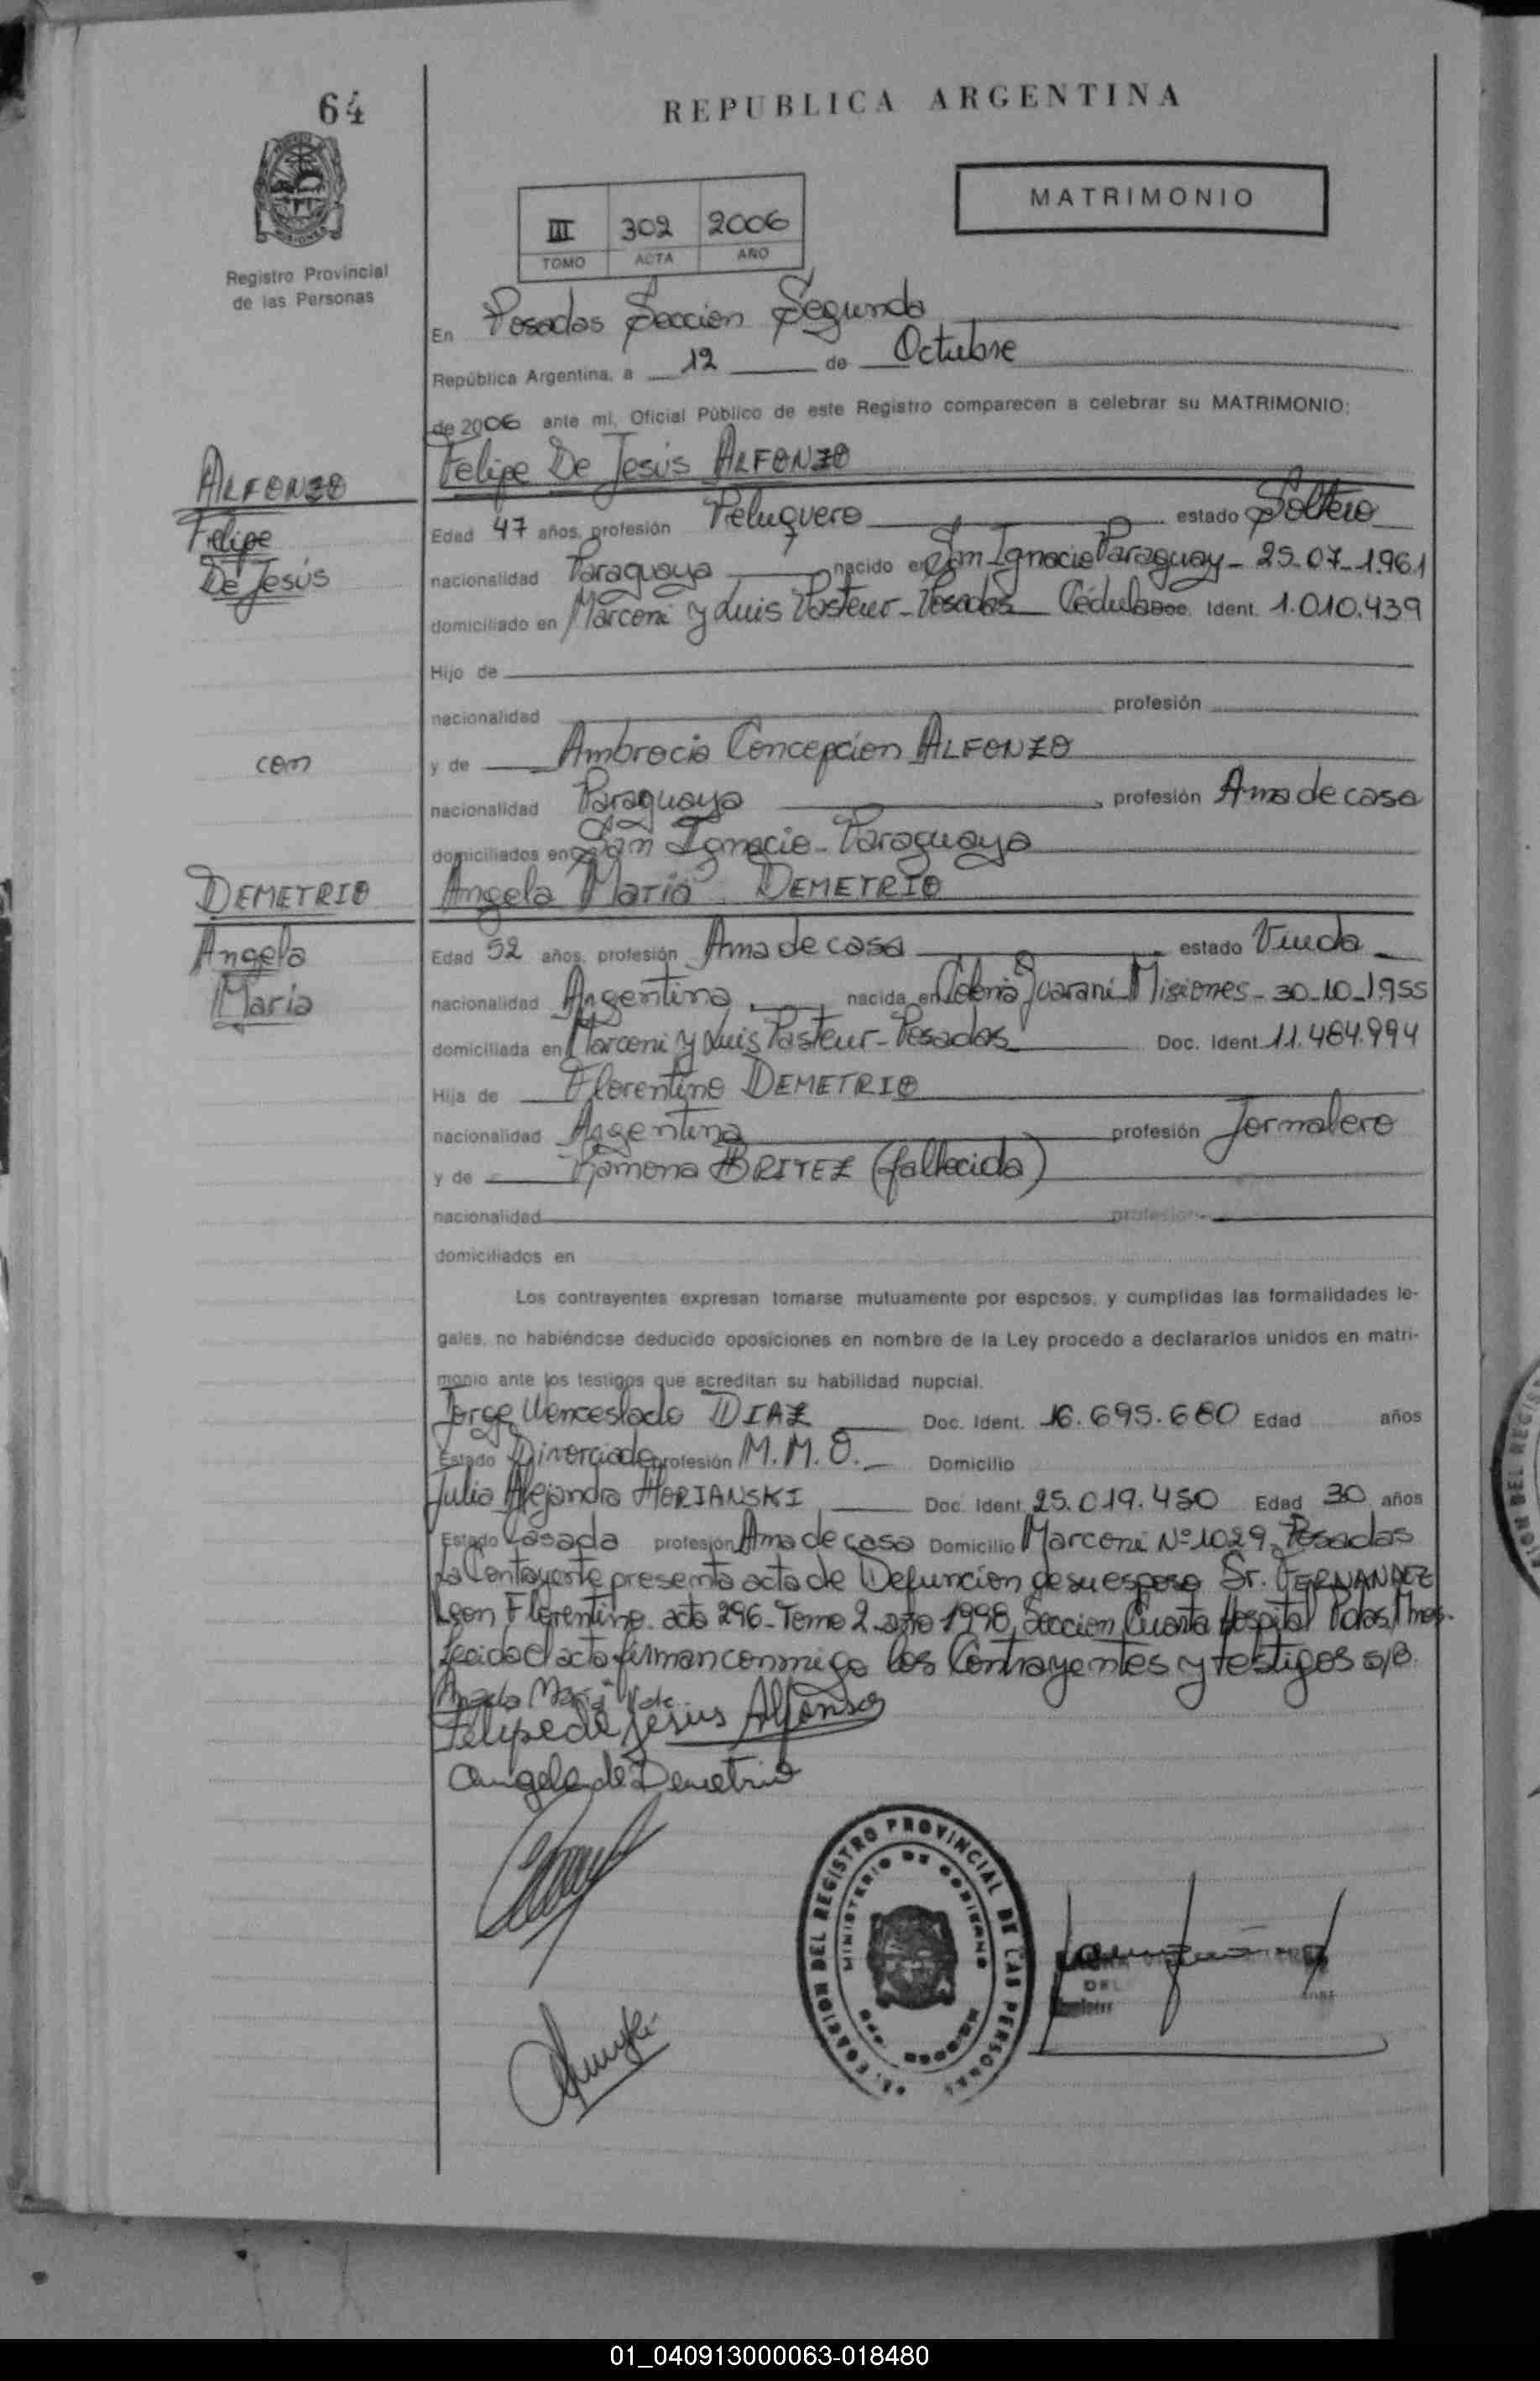 64
REPUBLICA ARGENTINA
MATRIMONIO
III 302 2006
TOMO ACTA AÑO
Registro Provincial
de las Personas
En Posadas Seccion Segunda
República Argentina, a 12 de Octubre
de 2006 ante mí, Oficial Público de este Registro comparecen a celebrar su MATRIMONIO:
ALFONZO
Felipe
De Jesús
Felipe De Jesús ALFONZO
Edad 47 años, profesión Peluquero estado Soltero
nacionalidad Paraguaya nacido en San Ignacio Paraguay - 25-07-1961
domiciliado en Marconi y Luis Pasteur - Posadas Cédula Doc. Ident. 1.010.439
Hijo de
nacionalidad profesión
con
y de Ambrocia Concepcion ALFONZO
nacionalidad Paraguaya, profesión Ama de casa
domiciliados en San Ignacio - Paraguaya
DEMETRIO
Angela
Maria
Angela Maria DEMETRIO
Edad 52 años, profesión Ama de casa estado Viuda
nacionalidad Argentina, nacida en Colonia Guarani Misiones - 30-10-1955
domiciliada en Marconi y Luis Pasteur - Posadas Doc. Ident. 11.484.994
Hija de Florentino DEMETRIO
nacionalidad Argentina profesión Jornalero
y de Ramona BRITEZ (fallecida)
nacionalidad profesión
domiciliados en
Los contrayentes expresan tomarse mutuamente por esposos, y cumplidas las formalidades le-
gales, no habiéndose deducido oposiciones en nombre de la Ley procedo a declararlos unidos en matri-
monio ante los testigos que acreditan su habilidad nupcial.
Jorge Wenceslado DIAZ Doc. Ident. 16.695.680 Edad años
Estado Divorciado profesión M.M.O. Domicilio
Julia Alejandra HORIANSKI Doc. Ident. 25.019.450 Edad 30 años
Estado Casada profesión Ama de casa Domicilio Marconi Nº 1029 - Posadas
La Contayente presenta acta de Defuncion de su esposo Sr. FERNANDEZ
Leon Florentino acta 296 - Tomo 2 año 1998, Seccion Cuarta Hospital Pdas, Mnes.
Leida el acta firman conmigo los Contrayentes y testigos s/B.
Angela Maria Vale
Felipe de Jesus Alfonso
Angela de Demetrio
DEL REGISTRO PROVINCIAL DE LAS PERSONAS
MINISTERIO DE GOBIERNO
01_040913000063-018480